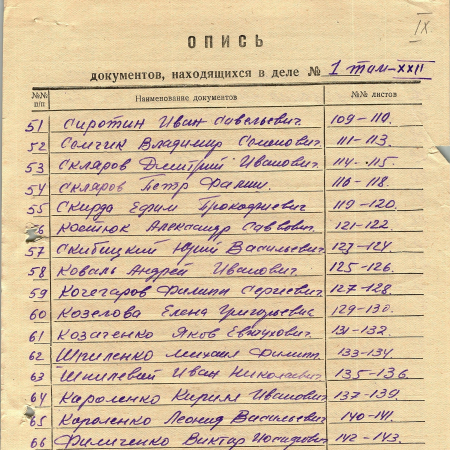 IX.
ОПИСЬ
документов, находящихся в деле № 1 том-XXII
№№ п/п Наименование документов №№ листов
51 Сиротин Иван Савельевич. 109-110.
52 Семгин Владимир Семенович. 111-113.
53 Скляров Дмитрий Иванович. 114-115.
54 Скляров Петр Филип. 116-118.
55 Скирдо Ефим Прокофиевич 119-120.
56 Костюк Александр Саввович. 121-122.
57 Скибицкий Юрий Васильевич 123-124
58 Коваль Андрей Иванович. 125-126.
59 Кочегаров Филипп Сергиевич. 127-128
60 Козелова Елена Григорьевна 129-130.
61 Козаченко Яков Евтухович. 131-132.
62 Шпиленко Михаил Филипп. 133-134.
63 Шпилевий Иван Николаевич. 135-136.
64 Кароленко Кирилл Иванович 137-139.
65 Короленко Леонид Васильевич 140-141.
66 Филиченко Виктар Иосифович 142-143.